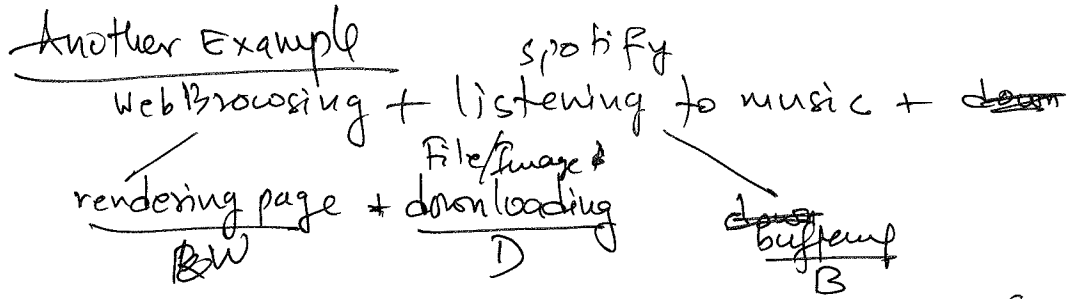 Another Example
spotify
Web Browsing + listening to music +
File/Image
rendering page + downloading
buffering
W D B